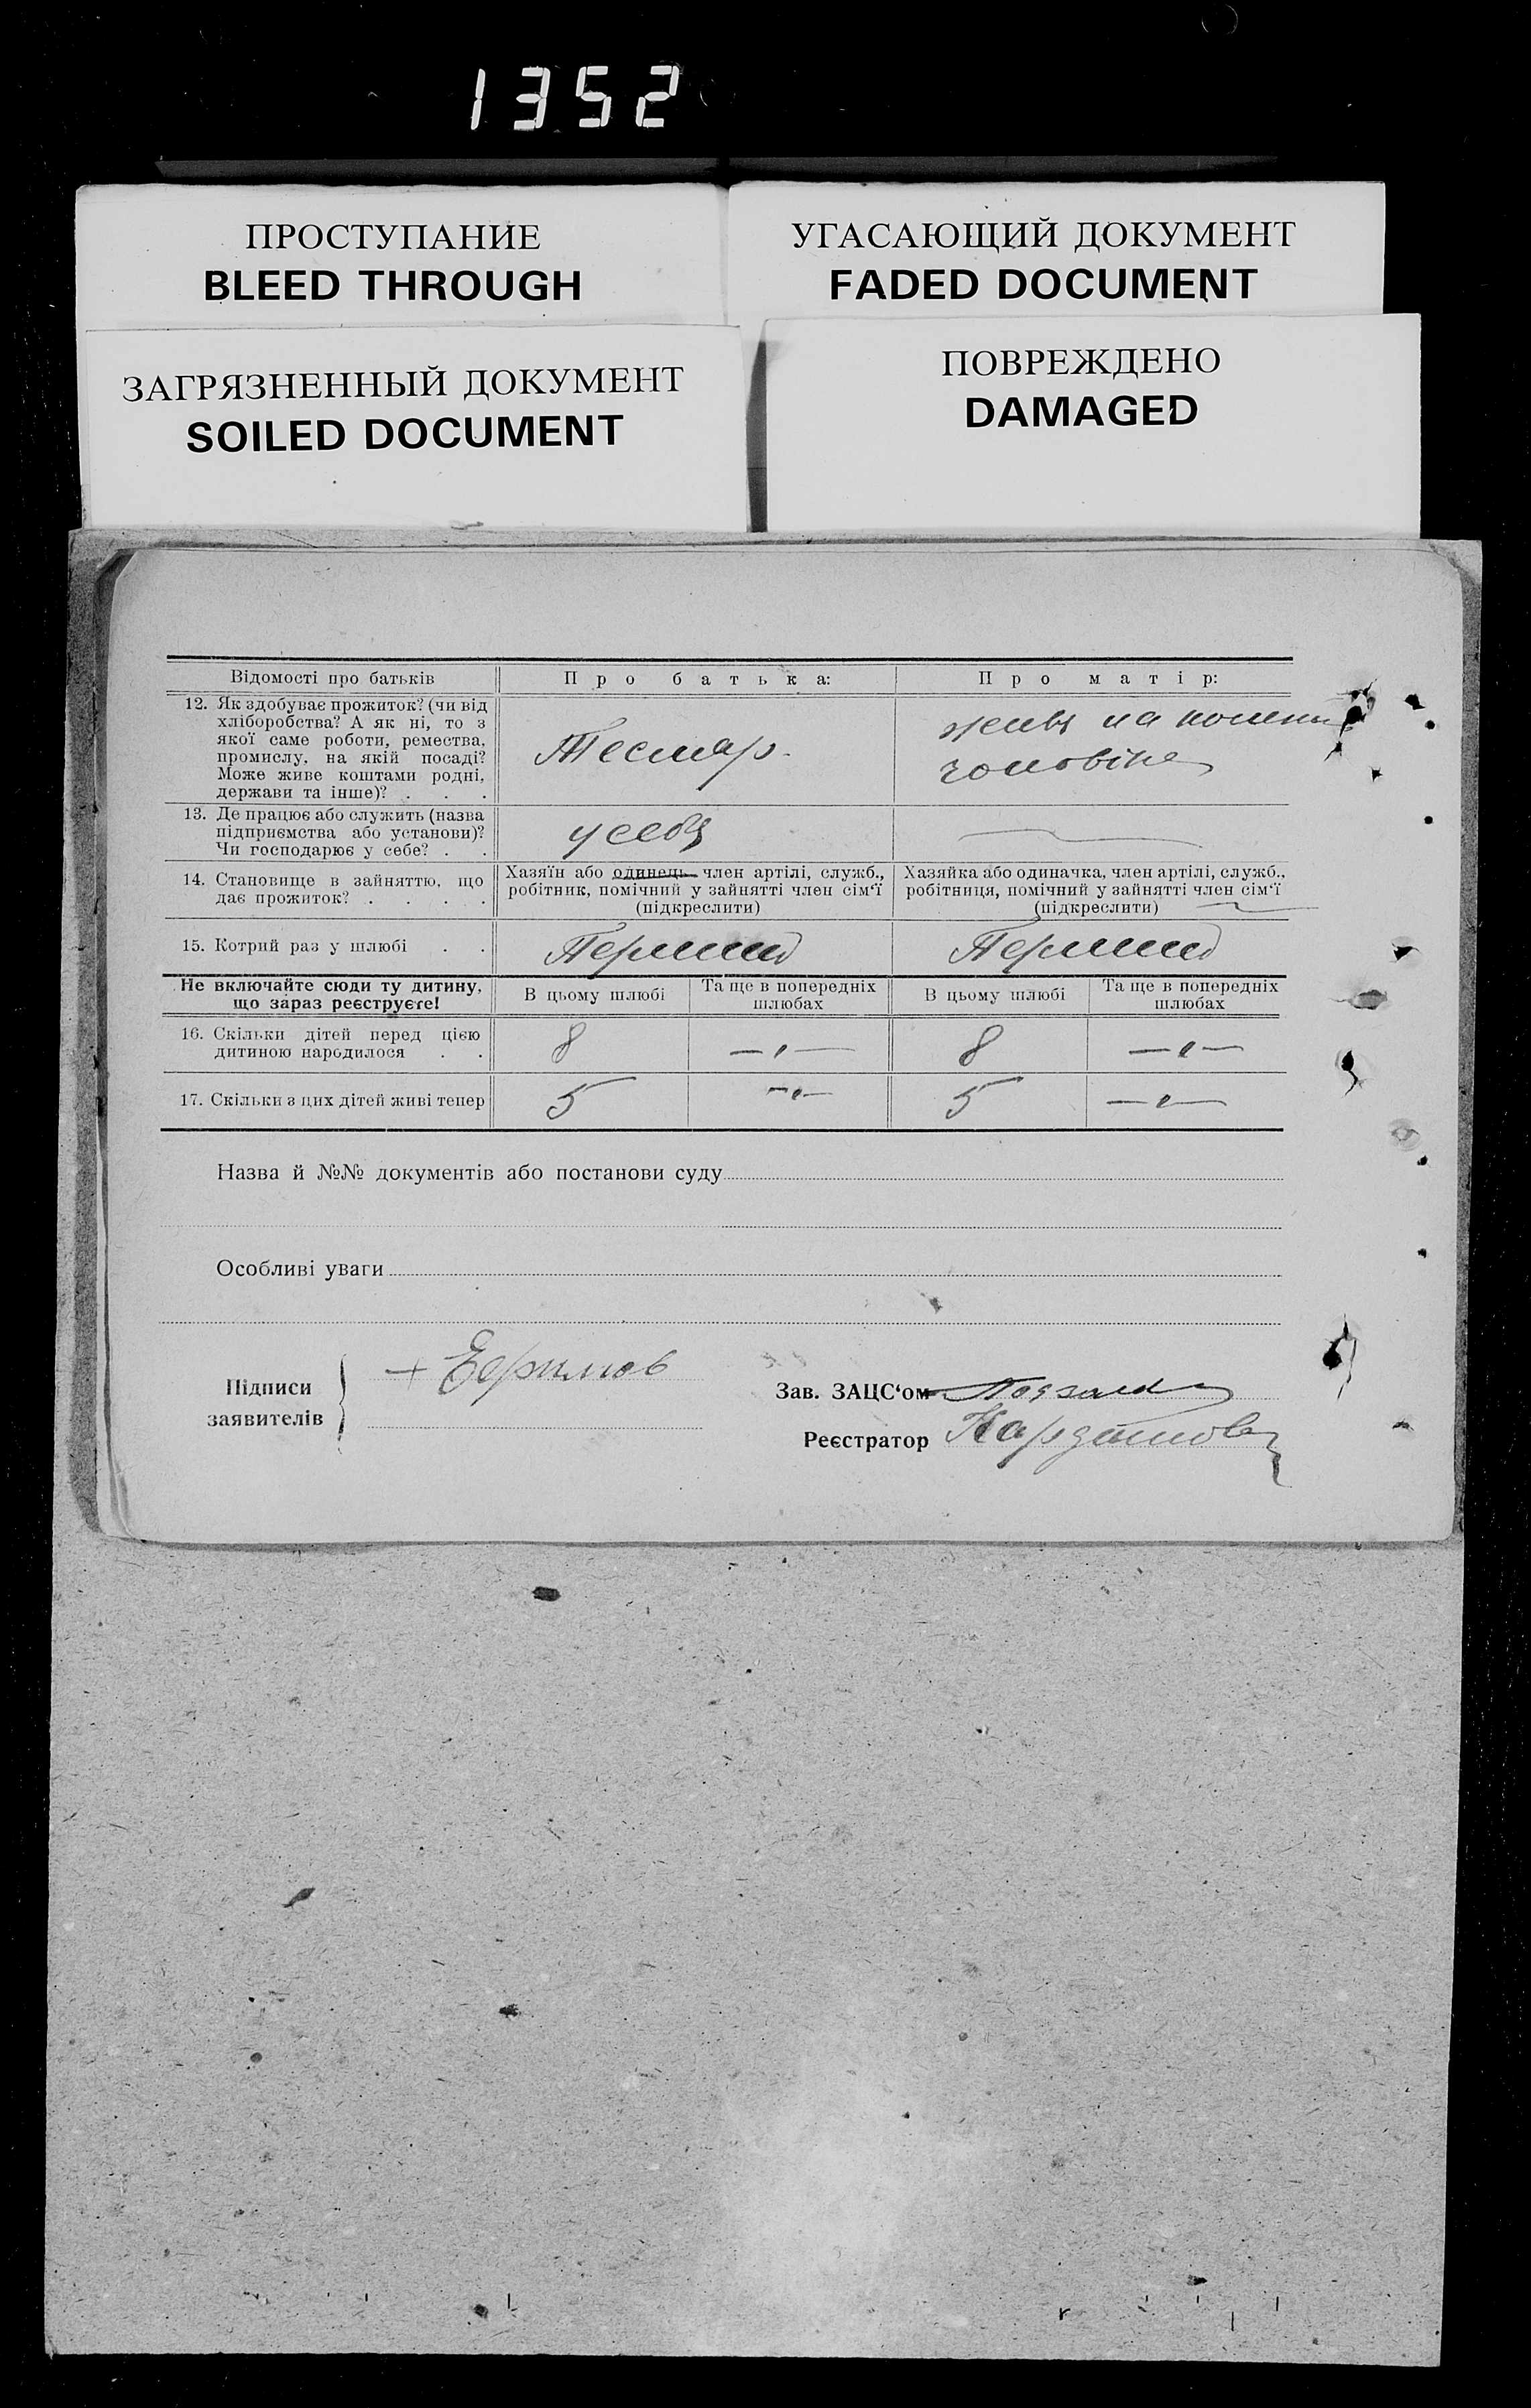 1352
ПРОСТУПАНИЕ
BLEED THROUGH
УГАСАЮЩИЙ ДОКУМЕНТ
FADED DOCUMENT
ЗАГРЯЗНЕННЫЙ ДОКУМЕНТ
SOILED DOCUMENT
ПОВРЕЖДЕНО
DAMAGED
Відомості про батьків
Про батька:
Про матір:
12. Як здобуває прожиток? (чи від
хліборобства? А як ні, то з
якої саме роботи, ремества,
промислу, на якій посаді?
Може живе коштами родні,
держави та інше)? . . .
Тесляр.
на
чоловіка
13. Де працює або служить (назва
підприємства або установи)?
Чи господарює у себе? . .
у себя
14. Становище в зайняттю, що
дає прожиток? . . . .
Хазяїн або одинець член артілі, служб.,
робітник, помічний у зайнятті член сім‘ї
(підкреслити)
Хазяйка або одиначка, член артілі, служб.,
робітниця, помічний у зайнятті член сім‘ї
(підкреслити)
15. Котрий раз у шлюбі . .
Перший
Перший
Не включайте сюди ту дитину,
що зараз реєструєте!
В цьому шлюбі
Та ще в попередніх
шлюбах
В цьому шлюбі
Та ще в попередніх
шлюбах
16. Скільки дітей перед цією
дитиною народилося . .
8
8
17. Скільки з цих дітей живі тепер
5
5
Назва й №№ документів або постанови суду
Особливі уваги
Підписи
заявителів
Зав. ЗАЦС‘ом
Реєстратор